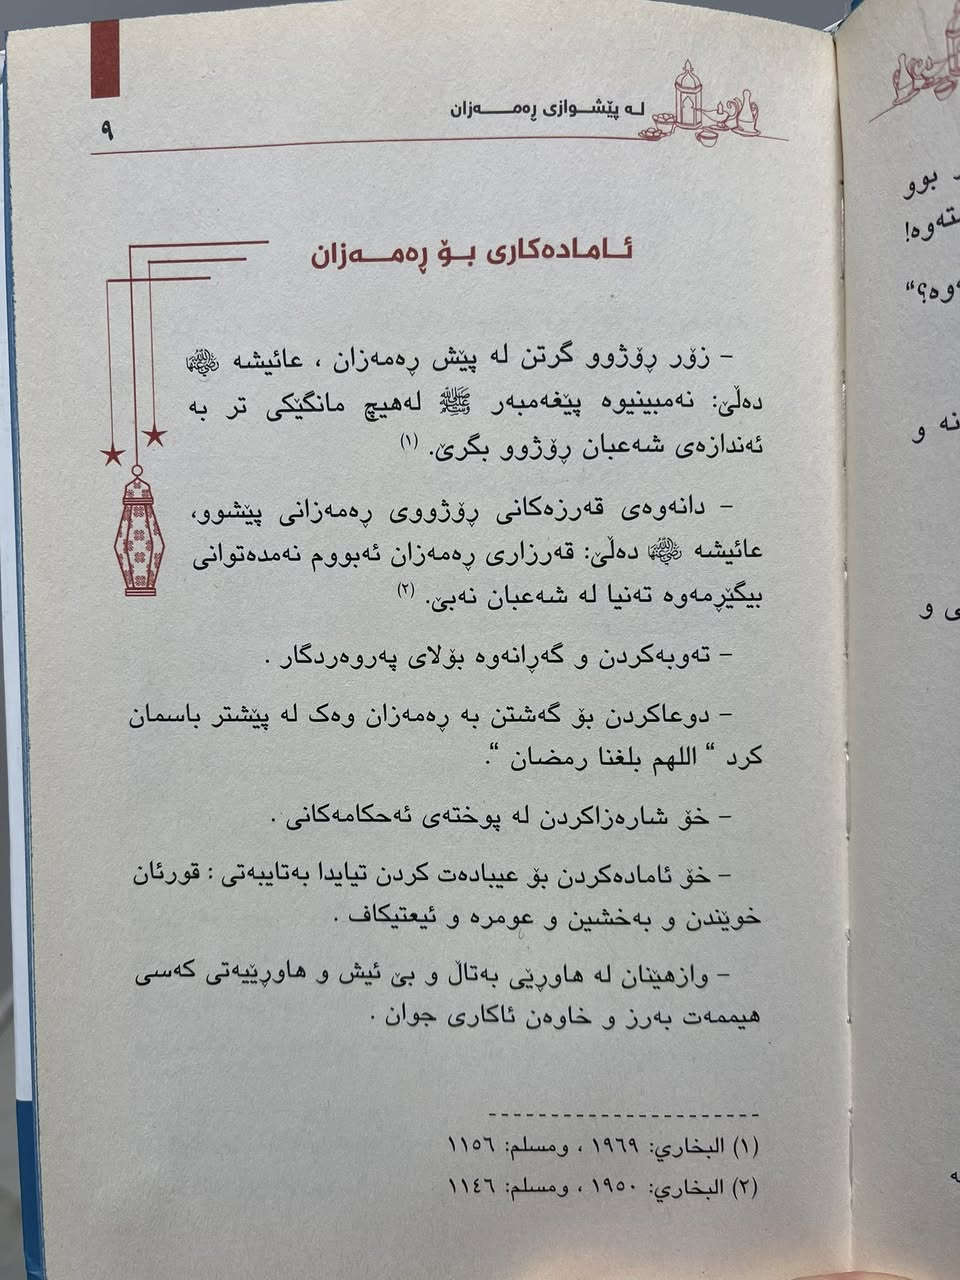 له پێشوازی ڕەمەزان
٩
ئامادەکاری بۆ ڕەمەزان
- زۆر ڕۆژوو گرتن لە پێش ڕەمەزان ، عائیشە رضي الله عنها
دەڵێ: نەمبینیوە پێغەمبەر ﷺ لەهیچ مانگێکی تر بە
ئەندازەی شەعبان ڕۆژوو بگرێ. (١)
- دانەوەی قەرزەکانی ڕۆژووی ڕەمەزانی پێشوو،
عائیشە رضي الله عنها دەڵێ: قەرزاری ڕەمەزان ئەبووم نەمدەتوانی
بیگێڕمەوە تەنیا لە شەعبان نەبێ. (٢)
- تەوبەکردن و گەڕانەوە بۆلای پەروەردگار .
- دوعاکردن بۆ گەشتن بە ڕەمەزان وەک لە پێشتر باسمان
کرد “ اللهم بلغنا رمضان “.
- خۆ شارەزاکردن لە پوختەی ئەحکامەکانی .
- خۆ ئامادەکردن بۆ عیبادەت کردن تیایدا بەتایبەتی : قورئان
خوێندن و بەخشین و عومرە و ئیعتیکاف .
- وازهێنان لە هاوڕێی بەتاڵ و بێ ئیش و هاوڕێیەتی کەسی
هیممەت بەرز و خاوەن ئاکاری جوان .
(١) البخاري: ١٩٦٩ ، ومسلم: ١١٥٦
(٢) البخاري: ١٩٥٠ ، ومسلم: ١١٤٦
بوو
تەوە!
ەوە؟“
نە و
ی و